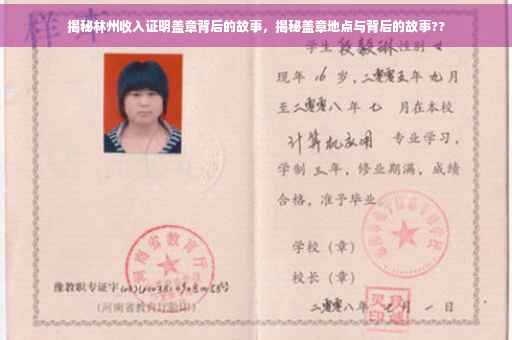 揭秘林州收入证明盖章背后的故事，揭秘盖章地点与背后的故事??
样本
学生段毅琳性别女
现年16岁，二零零五年九月
至二零零八年七月在本校
计算机应用 专业学习，
学制三年，修业期满，成绩
合格，准予毕业
学校（章）
校长（章）
河南省教育厅
豫教职专证字
（河南省教育厅验印）
二零零八年 月一日